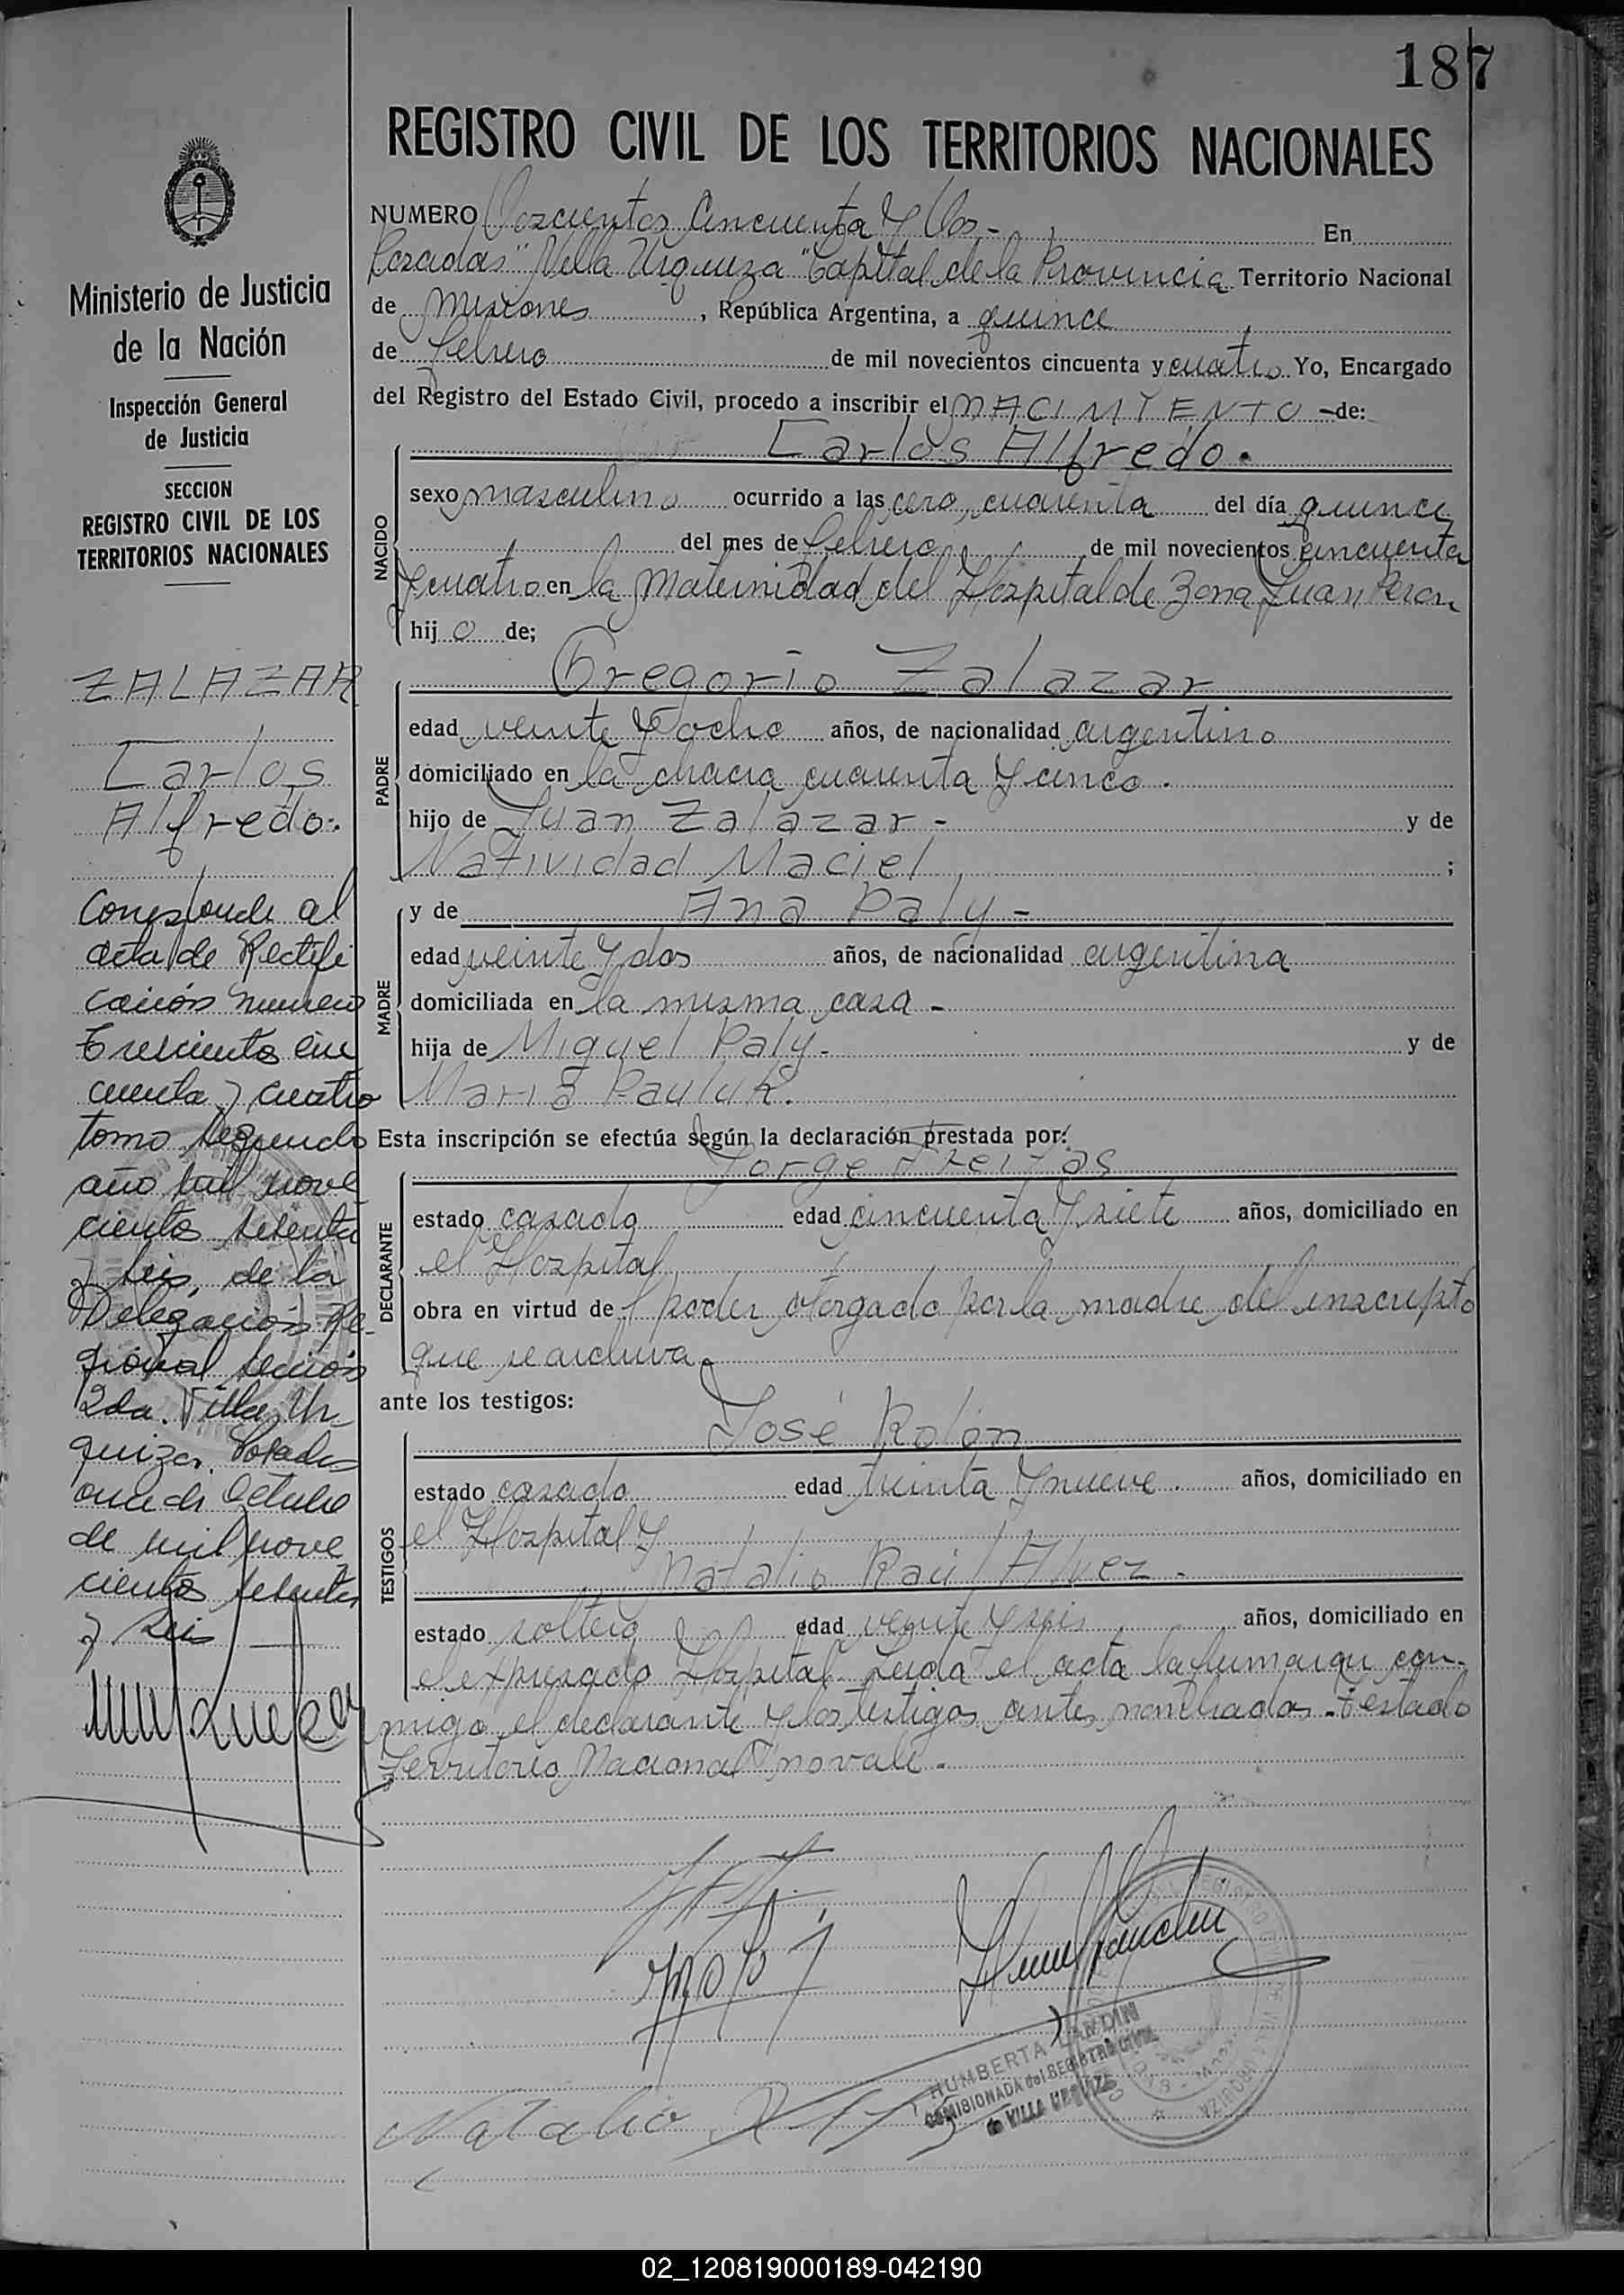 187
REGISTRO CIVIL DE LOS TERRITORIOS NACIONALES
Ministerio de Justicia
de la Nación
Inspección General
de Justicia
SECCION
REGISTRO CIVIL DE LOS
TERRITORIOS NACIONALES
ZALAZAR
Carlos
Alfredo.
Corresponde al
acta de Rectifi
cación numero
Trescientos cin
cuenta y cuatro
tomo segundo
año mil nove
cientos sesenta
y seis, de la
Delegación Re-
gional sección
2da. Villa Ur
quiza. Posadas
once de Octubre
de mil nove
cientos sesenta
y seis
NUMERO Doscientos Cincuenta Y Dos - En
Posadas "Villa Urquiza" Capital de la Provincia Territorio Nacional
de Misiones, República Argentina, a quince
de febrero de mil novecientos cincuenta y cuatro Yo, Encargado
del Registro del Estado Civil, procedo a inscribir el NACIMIENTO - de:
Carlos Alfredo.
NACIDO
sexo masculino ocurrido a las cero, cuarenta del día quince
del mes de febrero de mil novecientos cincuenta
y cuatro en la Maternidad del Hospital de Zona Juan Peron
hijo de;
Gregorio Zalazar
PADRE
edad veinte y ocho años, de nacionalidad argentino
domiciliado en la chacra cuarenta y cinco.
hijo de Juan Zalazar - y de
Natividad Maciel ;
MADRE
y de Ana Paly -
edad veinte y dos años, de nacionalidad argentina
domiciliada en la misma casa -
hija de Miguel Paly. y de
Maria Pauluk.
Esta inscripción se efectúa según la declaración prestada por:
Jorge Freitas
DECLARANTE
estado casado edad cincuenta y siete años, domiciliado en
el Hospital
obra en virtud de poder otorgado por la madre del inscripto
que se archiva.
ante los testigos:
José Rolón
TESTIGOS
estado casado edad treinta y nueve. años, domiciliado en
el Hospital y
Natalio Raúl Alvez.
estado soltero edad veinte y seis años, domiciliado en
el expresado Hospital. Leida el acta la firmaron con-
migo el declarante y los testigos antes nombrados. Testado
"Territorio Nacional" no vale.
Natalio R
HUMBERTA
COMISIONADA del REGISTRO CIVIL
de VILLA URQUIZA
02_120819000189-042190